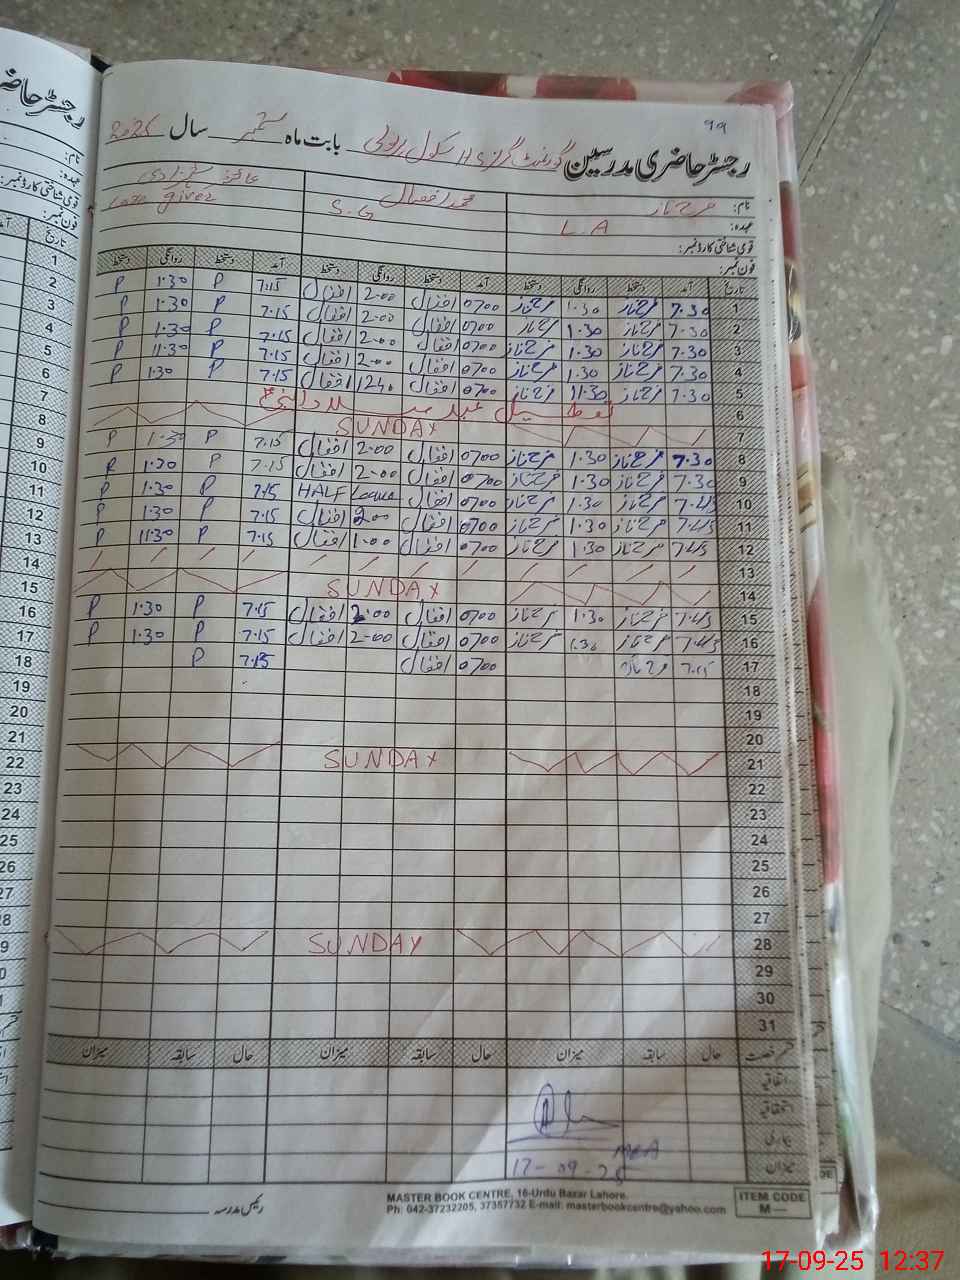 99
رجسٹر حاضری مدرسین گورنمنٹ گرلز H S سکول بابت ماہ ستمبر سال 2025
نام: فرح ناز محمد افضال
عہدہ: L.A S.G care giver
قومی شناختی کارڈ نمبر:
فون نمبر:
تاریخ آمد دستخط روانگی دستخط آمد دستخط روانگی دستخط آمد دستخط روانگی دستخط
1 7.30 فرح ناز 1.30 فرح ناز 0700 افضال 2.00 افضال 7.15 P 1.30 P
2 7.30 فرح ناز 1.30 فرح ناز 0700 افضال 2.00 افضال 7.15 P 1.30 P
3 7.30 فرح ناز 1.30 فرح ناز 0700 افضال 2.00 افضال 7.15 P 1.30 P
4 7.30 فرح ناز 1.30 فرح ناز 0700 افضال 2.00 افضال 7.15 P 11.30 P
5 7.30 فرح ناز 11.30 فرح ناز 0700 افضال 1240 افضال 7.15 P 1.30 P
6 تعطیل عید میلادالنبی
7 SUNDAY
8 7.30 فرح ناز 1.30 فرح ناز 0700 افضال 2.00 افضال 7.15 P 1.30 P
9 7.30 فرح ناز 1.30 فرح ناز 0700 افضال 2.00 افضال 7.15 P 1.30 P
10 7.45 فرح ناز 1.30 فرح ناز 0700 افضال HALF Leave 7.15 P 1.30 P
11 7.45 فرح ناز 1.30 فرح ناز 0700 افضال 2.00 افضال 7.15 P 1.30 P
12 7.45 فرح ناز 1.30 فرح ناز 0700 افضال 1.00 افضال 7.15 P 11.30 P
13
14 SUNDAY
15 7.45 فرح ناز 1.30 فرح ناز 0700 افضال 2.00 افضال 7.15 P 1.30 P
16 7.45 فرح ناز 1.30 فرح ناز 0700 افضال 2.00 افضال 7.15 P 1.30 P
17 7.15 فرح ناز 0700 افضال 7.15 P
18
19
20
21 SUNDAY
22
23
24
25
26
27
28 SUNDAY
29
30
31
قسم رخصت حال سابقہ میزان حال سابقہ میزان حال سابقہ میزان
اتفاقیہ
استحقاقیہ
بیماری
میزان
MEA
17-09-25
رئیس مدرسہ
MASTER BOOK CENTRE, 16-Urdu Bazar Lahore.
Ph: 042-37232205, 37357732 E-mail: masterbookcentre@yahoo.com
ITEM CODE
M —
رجسٹر حاضری
نام:
عہدہ:
قومی شناختی کارڈ نمبر:
فون نمبر:
تاریخ
1
2
3
4
5
6
7
8
9
10
11
12
13
14
15
16
17
18
19
20
21
22
23
24
25
17-09-25 12:37